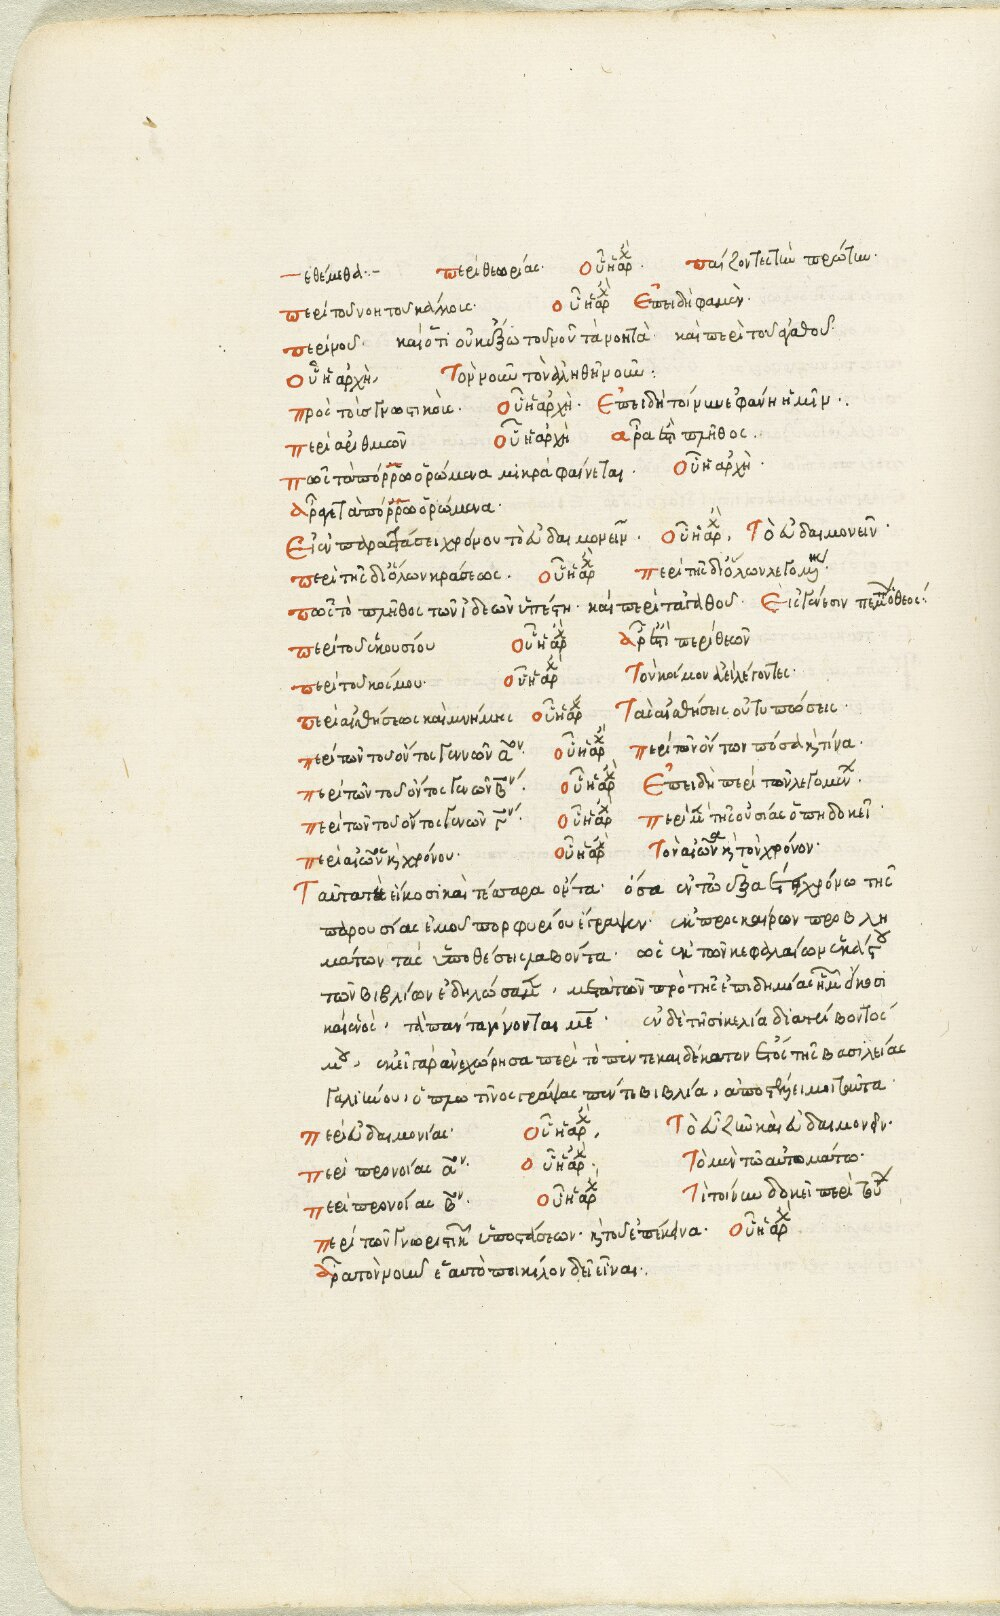 εθέμεθα· περὶ θεωρίας· οὗ ἡ ἀρχ· παίζοντες τὴν πρώτην·
περὶ τοῦ νοητοῦ κάλλους· οὗ ἡ ἀρχ Ἐπειδή φαμεν·
περὶ νοῦ· καὶ ὅτι οὐκ ἔξω τοῦ νοῦ τὰ νοητὰ καὶ περὶ τοῦ ἀγαθοῦ·
οὗ ἡ ἀρχή, Τὸν νοῦν τὸν ἀληθῆ νοῦν:
πρὸς τοὺς γνωστικούς· οὗ ἡ ἀρχή· Ἐπειδὴ τοίνυν ἐφάνη ἡμῖν·
περὶ ἀριθμῶν οὗ ἡ ἀρχή ἆρα ἐστὶ πλῆθος·
πῶς τὰ πόρρω ὁρώμενα μικρὰ φαίνεται· οὗ ἡ ἀρχή·
ἆρά γε τὰ πόρρω ὁρώμενα·
Εἰ ἐν παρατάσει χρόνου τὸ εὐδαιμονεῖν· οὗ ἡ ἀρχ, Τὸ εὐδαιμονεῖν·
περὶ τῆς δι' ὅλων κράσεως· οὗ ἡ ἀρχ περὶ τῆς δι' ὅλων λεγομένης·
πῶς τὸ πλῆθος τῶν ἰδεῶν ὑπέστη· καὶ περὶ τἀγαθοῦ· Εἰς γένεσιν πέμπων ὁ θεός:
περὶ τοῦ ἑκουσίου οὗ ἡ ἀρχ ἆρ' ἐστὶ περὶ θεῶν
περὶ τοῦ κόσμου· οὗ ἡ ἀρχ Τὸν κόσμον ἀεὶ λέγοντες·
περὶ αἰσθήσεως καὶ μνήμης οὗ ἡ ἀρχ Τὰς αἰσθήσεις οὐ τυπώσεις·
περὶ τῶν τοῦ ὄντος γενῶν αον· οὗ ἡ ἀρχ περὶ τῶν ὄντων πόσα κ τίνα·
περὶ τῶν τοῦ ὄντος γενῶν βον· οὗ ἡ ἀρχ Ἐπειδὴ περὶ τῶν λεγομένων·
περὶ τῶν τοῦ ὄντος γενῶν γον· οὗ ἡ ἀρχ περὶ μὲν τῆς οὐσίας ὅπη δοκεῖ·
περὶ αἰῶνος κ χρόνου· οὗ ἡ ἀρχ Τὸν αἰῶνα κ τὸν χρόνον·
Ταῦτα τὰ εἴκοσι καὶ τέσσαρα ὄντα· ὅσα ἐν τῷ ἑξαέτει χρόνω τῆς
παρουσίας ἐμοῦ πορφυρίου ἔγραψεν· ἐκ προσκαίρων προβλη
μάτων τὰς ὑποθέσεις λαβόντα· ὡς ἐκ τῶν κεφαλαίων ἑκάστου
τῶν βιβλίων ἐδηλώσαμεν, μετὰ τῶν πρὸ τῆς ἐπιδημίας ἡμῶν εἴκοσι
καὶ ἑνὸς, τὰ πάντα γίνονται με· ἐν δὲ τῆ σικελία διατρίβοντος
μου, ἐκεῖ γὰρ ἀνεχώρησα περὶ τὸ πεντεκαιδέκατον ἔτος τῆς βασιλείας
Γαλιήνου, ὁ πλωτῖνος γράψας πέντε βιβλία, ἀποστέλλει μοι ταῦτα·
περὶ εὐδαιμονίας· οὗ ἡ ἀρχ, Τὸ εὖ ζῆν καὶ εὐδαιμονεῖν·
περὶ προνοίας αον· οὗ ἡ ἀρχ· Τὸ μὲν τῶ αὐτομάτω·
περὶ προνοίας βον· οὗ ἡ ἀρχ Τί τοίνυν δοκεῖ περὶ τούτων
περὶ τῶν γνωριστικῶν ὑποστάσεων· κ τοῦ ἐπέκεινα· οὗ ἡ ἀρχ
ἆρα τὸ νοοῦν ἑαυτὸ ποικίλον δεῖ εἶναι·